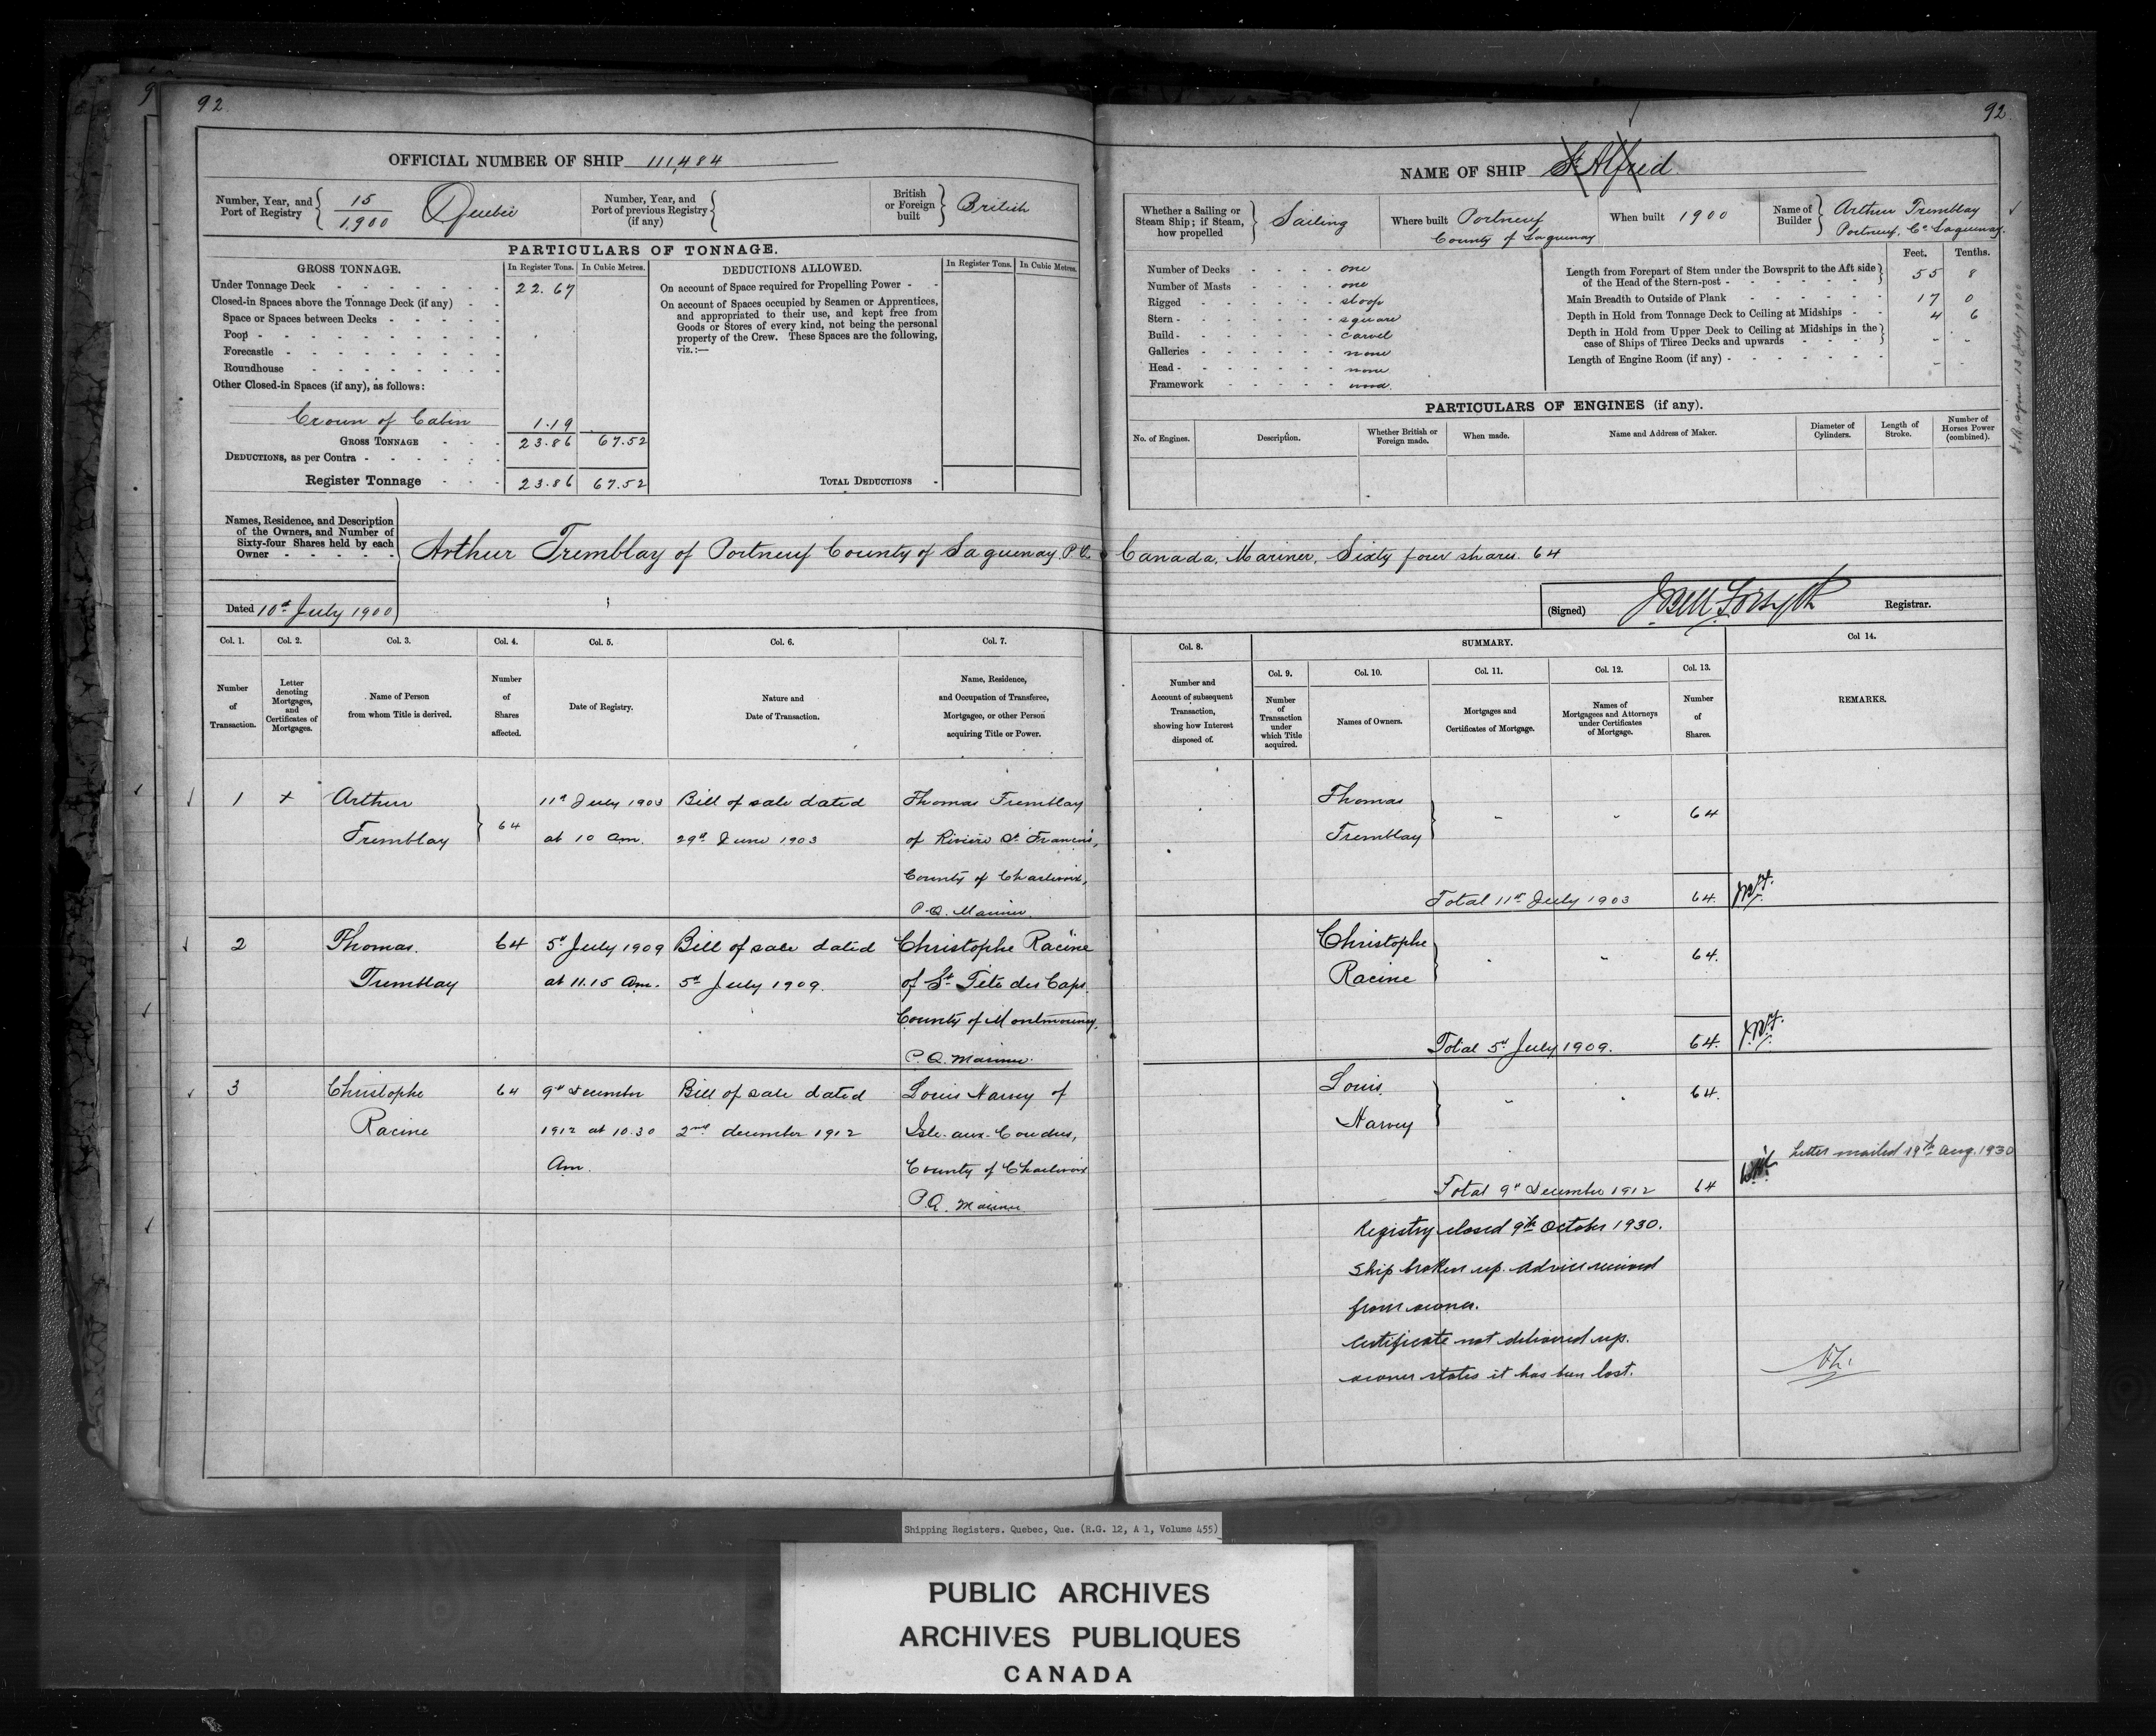 92
92
OFFICIAL NUMBER OF SHIP 111,484
Number, Year, and Port of Registry 15 / 1900 Quebec
Number, Year, and Port of previous Registry (if any)
British or Foreign built British
PARTICULARS OF TONNAGE.
GROSS TONNAGE. In Register Tons. In Cubic Metres.
Under Tonnage Deck 22.67
Closed-in Spaces above the Tonnage Deck (if any)
Space or Spaces between Decks
Poop
Forecastle
Roundhouse
Other Closed-in Spaces (if any), as follows:
Crown of Cabin 1.19
GROSS TONNAGE 23.86 67.52
DEDUCTIONS, as per Contra
Register Tonnage 23.86 67.52
DEDUCTIONS ALLOWED. In Register Tons. In Cubic Metres.
On account of Space required for Propelling Power
On account of Spaces occupied by Seamen or Apprentices,
and appropriated to their use, and kept free from
Goods or Stores of every kind, not being the personal
property of the Crew. These Spaces are the following,
viz.:—
TOTAL DEDUCTIONS
NAME OF SHIP St Alfred
Whether a Sailing or Steam Ship; if Steam, how propelled Sailing
Where built Portneuf
County of Saguenay
When built 1900
Name of Builder Arthur Tremblay
Portneuf, Co. Saguenay.
Number of Decks one
Number of Masts one
Rigged sloop
Stern square
Build carvel
Galleries none
Head none
Framework wood
Feet. Tenths.
Length from Forepart of Stem under the Bowsprit to the Aft side
of the Head of the Stern-post 55 8
Main Breadth to Outside of Plank 17 0
Depth in Hold from Tonnage Deck to Ceiling at Midships 4 6
Depth in Hold from Upper Deck to Ceiling at Midships in the
case of Ships of Three Decks and upwards
Length of Engine Room (if any)
PARTICULARS OF ENGINES (if any).
No. of Engines. Description. Whether British or Foreign made. When made. Name and Address of Maker. Diameter of Cylinders. Length of Stroke. Number of Horses Power (combined).
13 July 1900
Names, Residence, and Description
of the Owners, and Number of
Sixty-four Shares held by each
Owner
Arthur Tremblay of Portneuf County of Saguenay. P.Q. Canada, Mariner, Sixty four shares. 64
Dated 10th July 1900
(Signed) Registrar.
Col. 1. Col. 2. Col. 3. Col. 4. Col. 5. Col. 6. Col. 7.
Number of Transaction.
Letter denoting Mortgages, and Certificates of Mortgages.
Name of Person from whom Title is derived.
Number of Shares affected.
Date of Registry.
Nature and Date of Transaction.
Name, Residence, and Occupation of Transferee, Mortgagee, or other Person acquiring Title or Power.
Col. 8. SUMMARY. Col 14.
Col. 9. Col. 10. Col. 11. Col. 12. Col. 13.
Number and Account of subsequent Transaction, showing how Interest disposed of.
Number of Transaction under which Title acquired.
Names of Owners.
Mortgages and Certificates of Mortgage.
Names of Mortgagees and Attorneys under Certificates of Mortgage.
Number of Shares.
REMARKS.
1 + Arthur 64 11th July 1903 Bill of sale dated Thomas Tremblay
Tremblay at 10 am. 29th June 1903 of Rivière St François,
County of Charlevoix,
P.Q. Mariner
Thomas
Tremblay 64
Total 11th July 1903 64.
2 Thomas. 64 5th July 1909 Bill of sale dated Christophe Racine
Tremblay at 11.15 Am. 5th July 1909. of St Tite des Caps
County of Montmorency,
P.Q. Mariner.
Christophe
Racine 64.
Total 5th July 1909. 64.
3 Christophe 64 9th December Bill of sale dated Louis Harvey of
Racine 1912 at 10.30 2nd december 1912 Isle-aux-Coudres,
Am. County of Charlevoix
P.Q. Mariner
Louis
Harvey 64.
Letter mailed 19th Aug. 1930
Total 9th December 1912 64
Registry closed 9th October 1930.
Ship broken up. Advice received
from owner.
Certificate not delivered up.
owner states it has been lost.
Shipping Registers. Quebec, Que. (R.G. 12, A 1, Volume 455)
PUBLIC ARCHIVES
ARCHIVES PUBLIQUES
CANADA